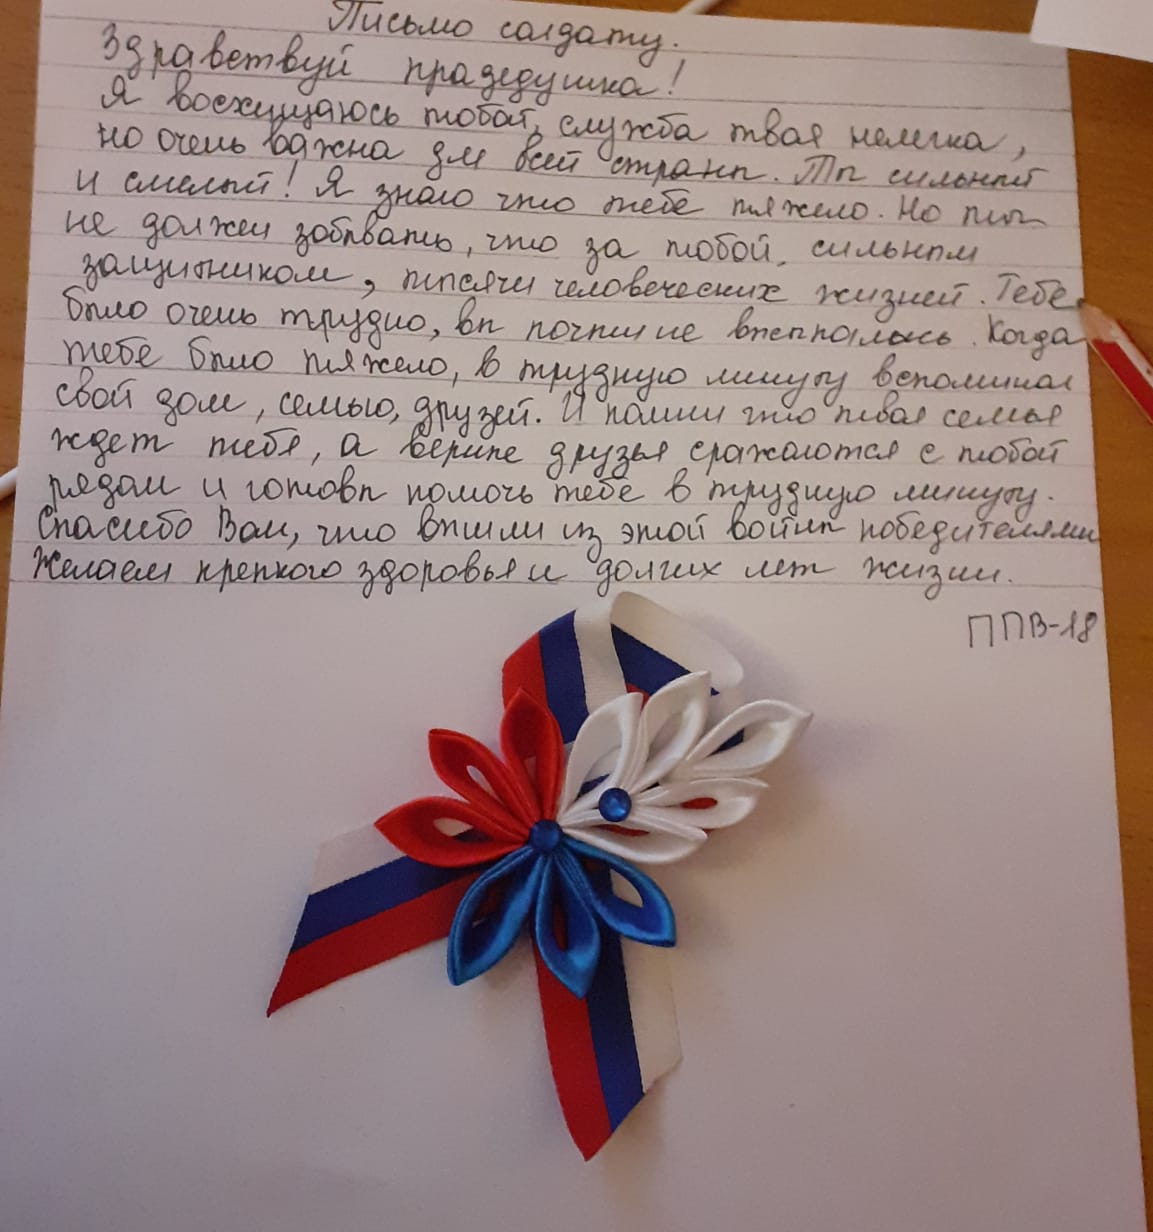 Письмо солдату.
Здравствуй прадедушка!
Я восхищаюсь тобой, служба твоя нелегка,
но очень важна для всей страны. Ты сильный
и смелый! Я знаю что тебе тяжело. Но ты
не должен забывать, что за тобой, сильным
защитником, тысячи человеческих жизней. Тебе
было очень трудно, вы почти не
Когда
тебе было тяжело, в трудную минуту вспоминал
свой дом, семью, друзей. И помни что твоя семья
ждет тебя, а верные друзья сражаются с тобой
рядом и готовы помочь тебе в трудную минуту.
Спасибо Вам, что вышли из этой войны победителями
Желаем крепкого здоровья и долгих лет жизни.
ППВ-18